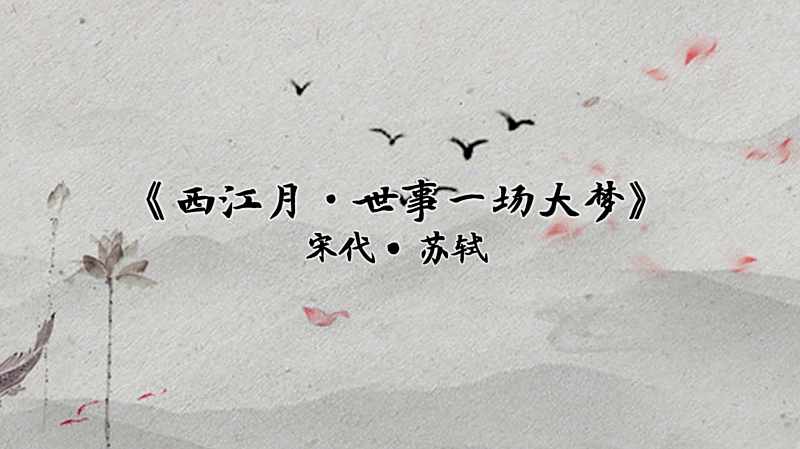 《西江月·世事一场大梦》
宋代•苏轼